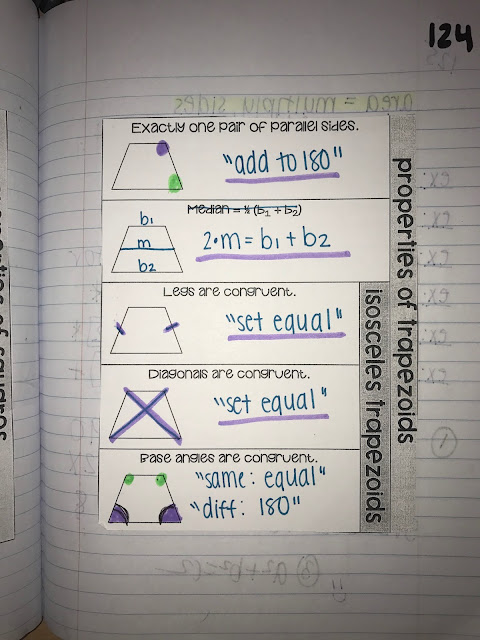 124
area = multiply sides
Exactly one pair of parallel sides.
"add to 180"
Median = ½ (b₁ + b₂)
b1
m
b2
2•m = b1 + b2
Legs are congruent.
"set equal"
Diagonals are congruent.
"set equal"
Base angles are congruent.
"same: equal"
"diff: 180"
properties of trapezoids
isosceles trapezoids